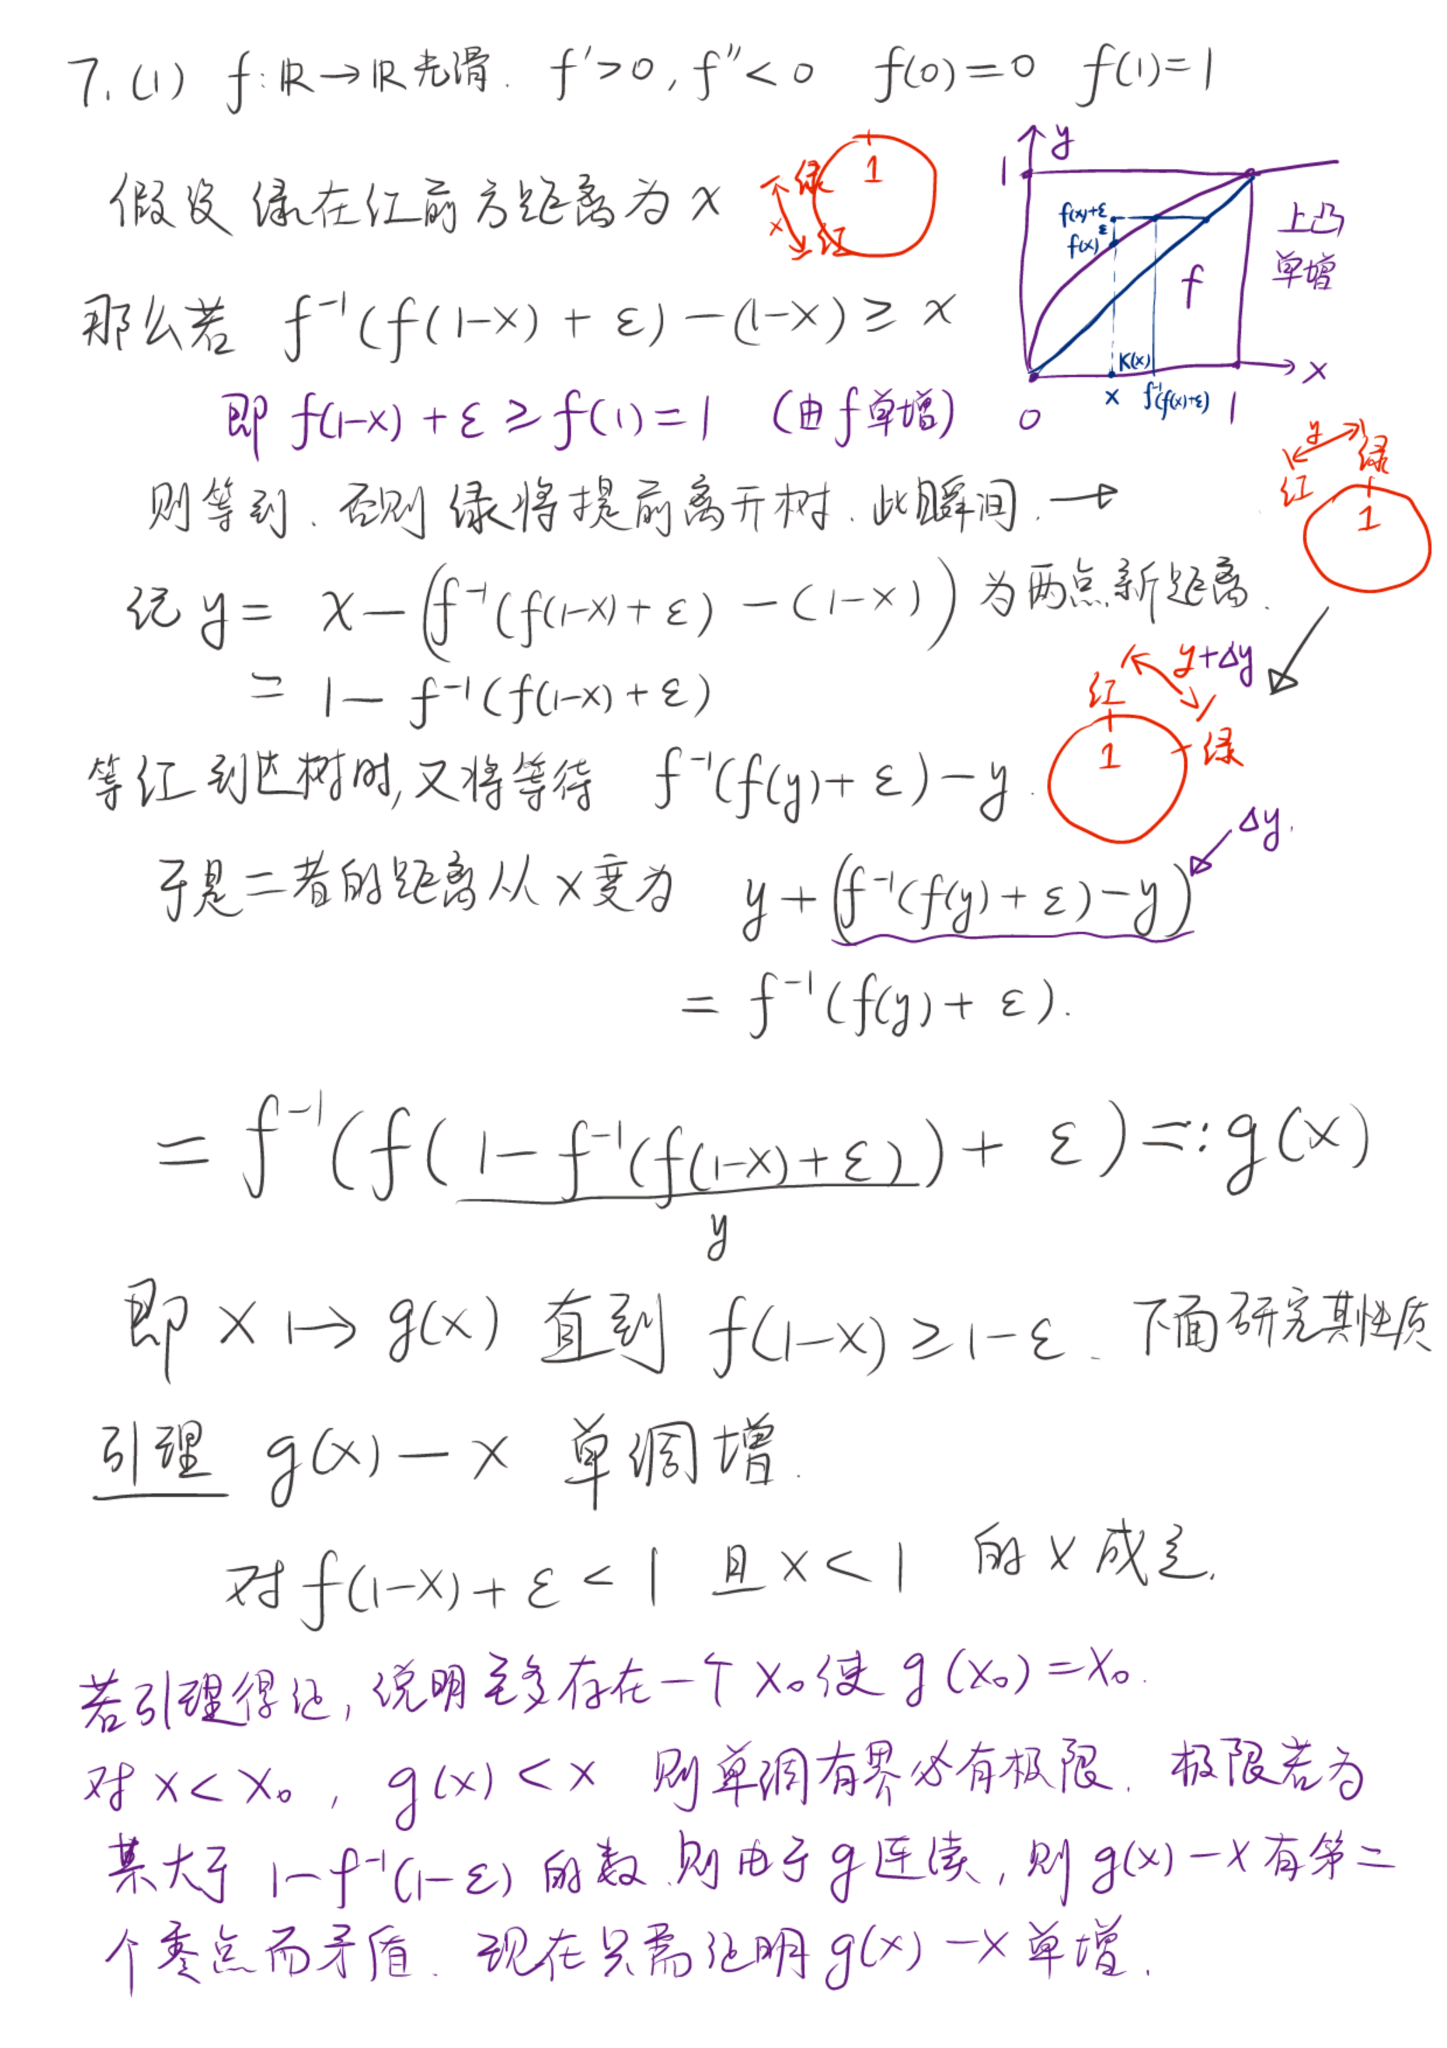 7. (1) f: ℝ→ℝ光滑. f'>0, f''<0 f(0)=0 f(1)=1
假设 绿在红前方距离为 x
绿
1
x
红
y
1
f(x)+ε
ε
f(x)
f
K(x)
x
0
x
f⁻¹(f(x)+ε)
1
上凸
单增
那么若 f⁻¹(f(1-x)+ε)-(1-x)≥x
即 f(1-x)+ε≥f(1)=1 (由f单增)
则等到. 否则绿将提前离开树. 此瞬间. →
y
绿
红
1
记 y= x-(f⁻¹(f(1-x)+ε)-(1-x)) 为两点新距离.
= 1-f⁻¹(f(1-x)+ε)
y+Δy
红
1
绿
等红到达树时,又将等待 f⁻¹(f(y)+ε)-y.
Δy.
于是二者的距离从x变为 y+(f⁻¹(f(y)+ε)-y)
= f⁻¹(f(y)+ε).
= f⁻¹(f(1-f⁻¹(f(1-x)+ε))+ε)=:g(x)
y
即 x↦g(x) 直到 f(1-x)≥1-ε. 下面研究其性质
引理 g(x)-x 单调增.
对 f(1-x)+ε<1 且 x<1 的 x 成立.
若引理得证, 说明至多存在一个 x₀ 使 g(x₀)=x₀.
对 x<x₀, g(x)<x 则单调有界必有极限. 极限若为
某大于 1-f⁻¹(1-ε) 的数.则由于g连续, 则g(x)-x有第二
个零点而矛盾. 现在只需证明g(x)-x单增.